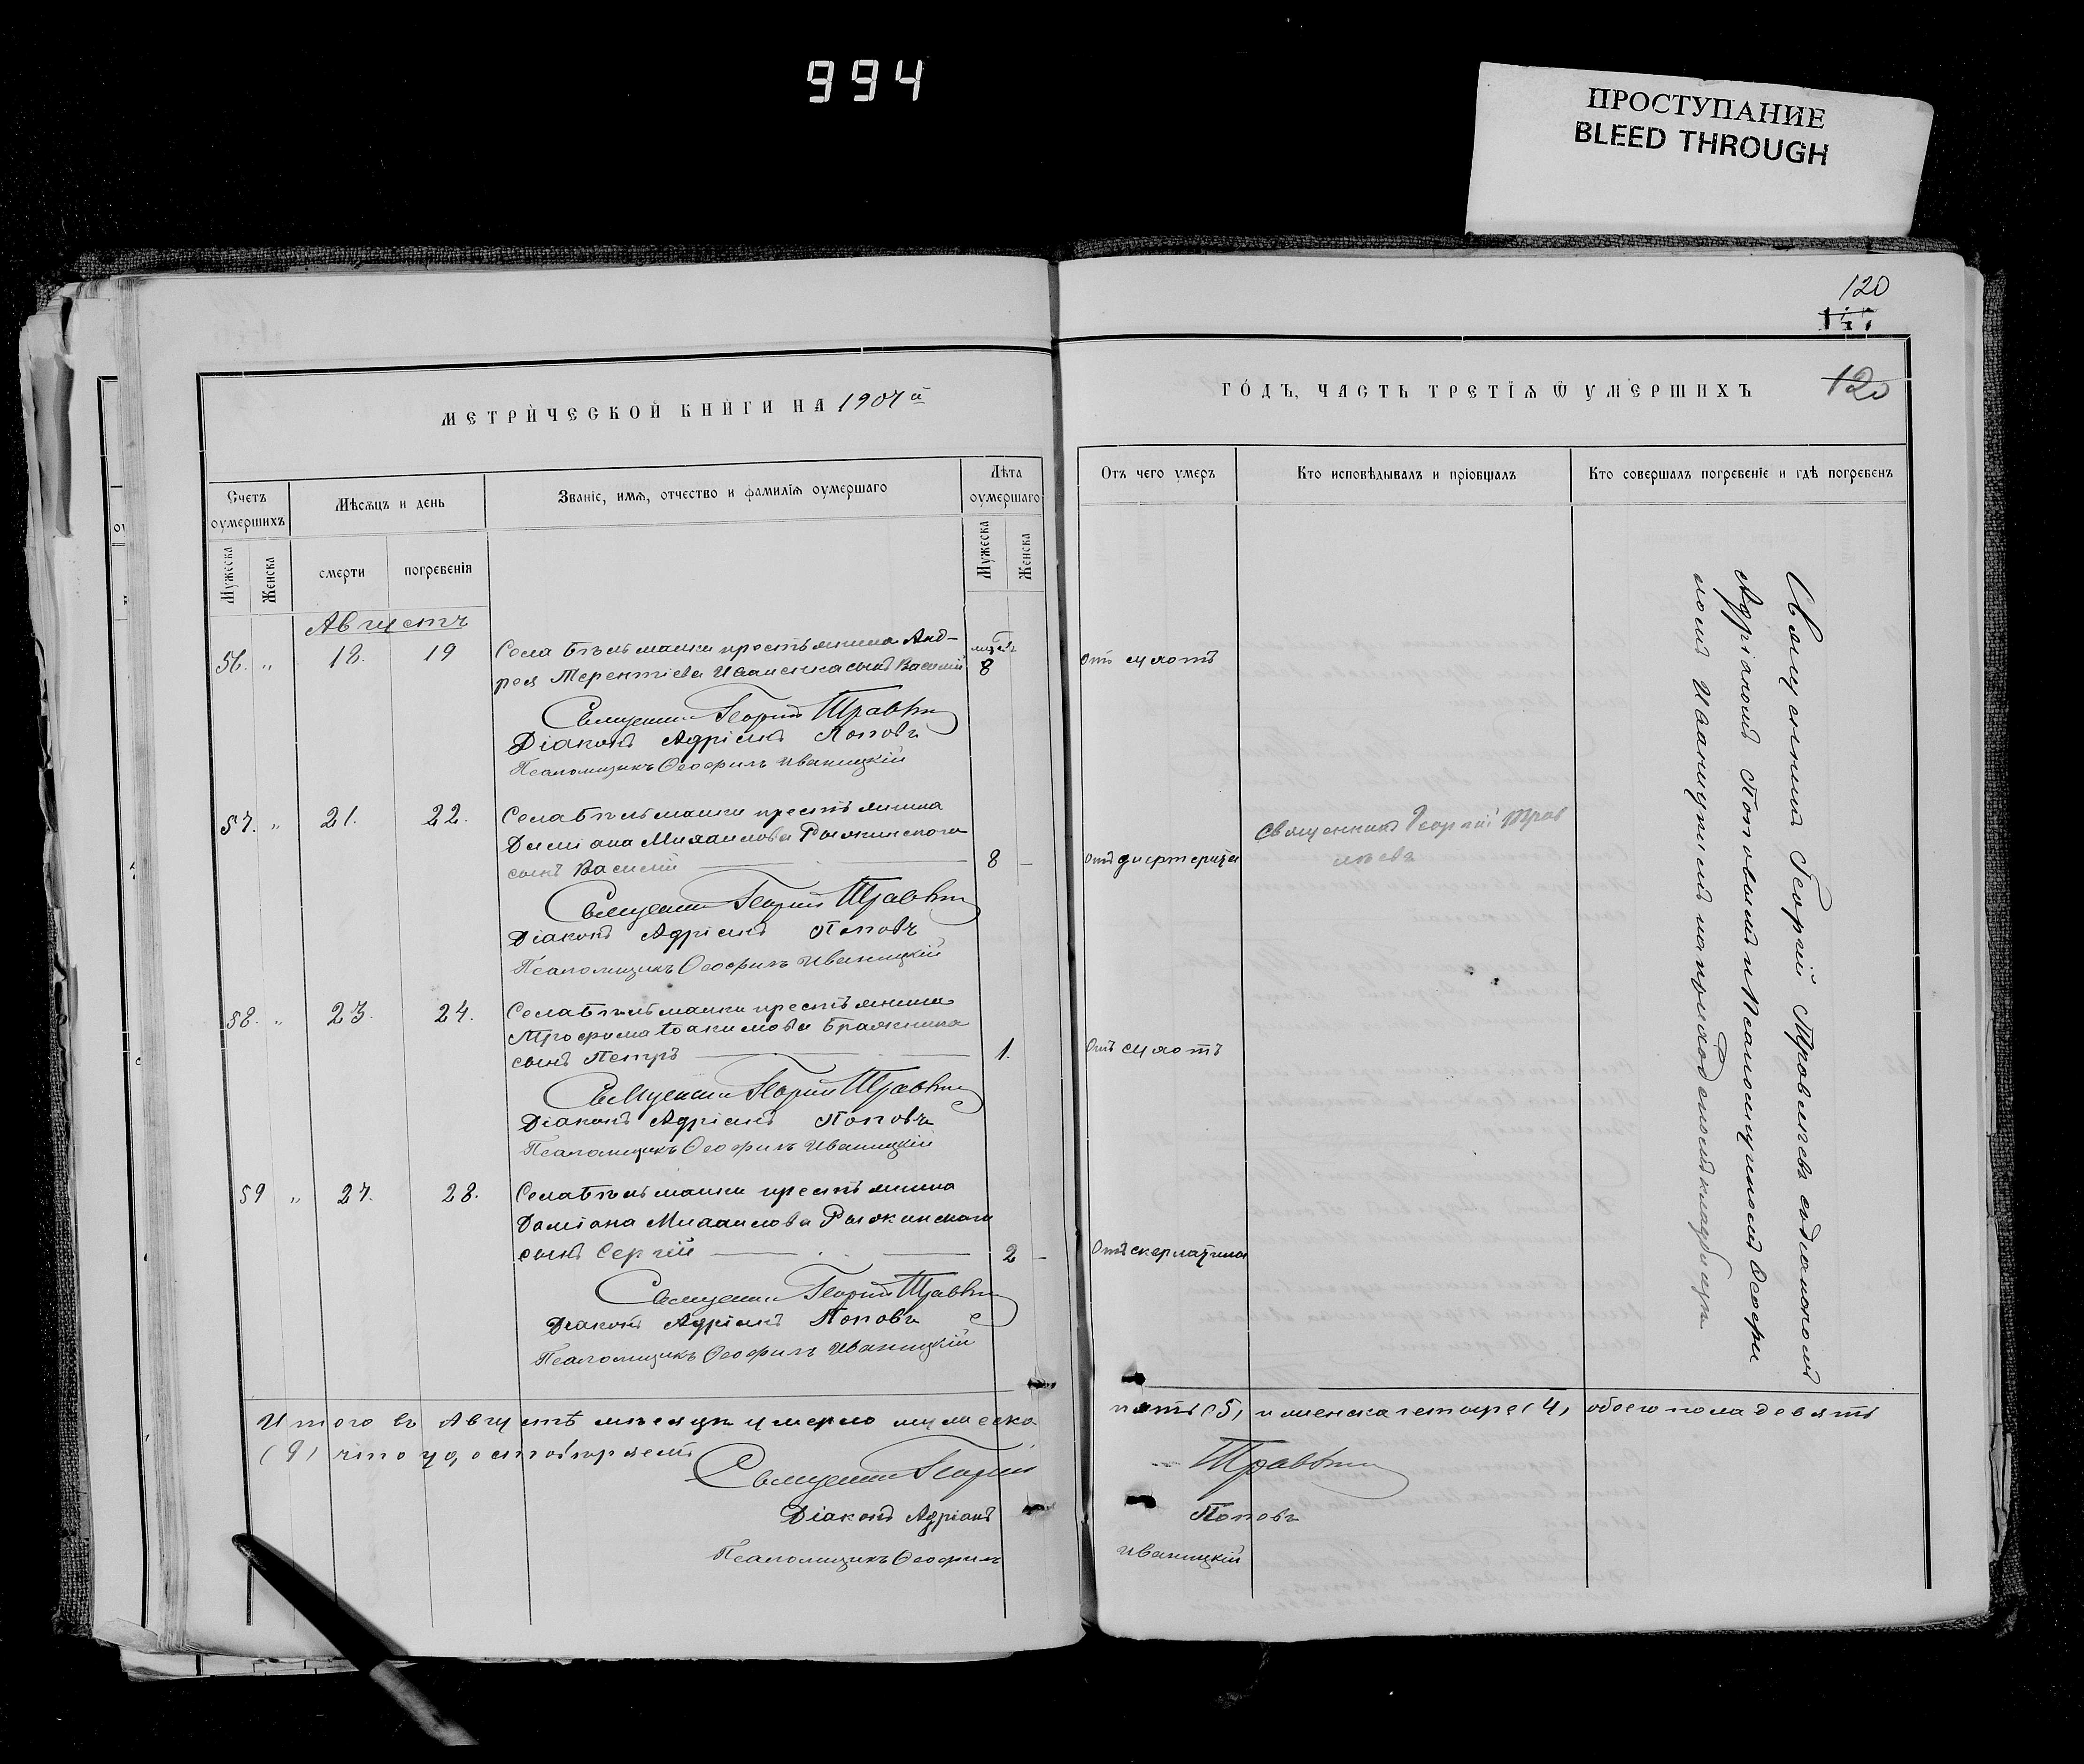 994
ПРОСТУПАНИЕ
BLEED THROUGH
МЕТРИЧЕСКОЙ КНИГИ НА 1907й
Счетъ оумершихъ
Мѣсяцъ и день
Званіе, имя, отчество и фамилія оумершаго
Лѣта оумершаго
Мужеска
Женска
смерти
погребенія
Мужеска
Женска
Августъ
56. „ 18. 19 Села Бѣльманки крестьянина Анд-
рея Терентіева Иваненка сынъ Василій 8
Священникъ Георгій Травлѣевъ
Діаконъ Адріанъ Поповъ
Псаломщикъ Ѳеофилъ Иваницкій
57. „ 21. 22. Села Бѣльманки крестьянина
Даміана Михаилова Рыжкинскаго
сынъ Василій 8
Священникъ Георгій Травлѣевъ
Діаконъ Адріанъ Поповъ
Псаломщикъ Ѳеофилъ Иваницкій
58. „ 23. 24. Села Бѣльманки крестьянина
Трофима Іоакимова Бражника
сынъ Петръ 1.
Священникъ Георгій Травлѣевъ
Діаконъ Адріанъ Поповъ
Псаломщикъ Ѳеофилъ Иваницкій
59 „ 27. 28. Села Бѣльманки крестьянина
Даміана Михаилова Рыжкинскаго
сынъ Сергій 2
Священникъ Георгій Травлѣевъ
Діаконъ Адріанъ Поповъ
Псаломщикъ Ѳеофилъ Иваницкій
Итого въ Августѣ мѣсяцѣ умерло мужеска
(9) что удостовѣряемъ
Священникъ Георгій
Діаконъ Адріанъ
Псаломщикъ Ѳеофилъ
120
120
ГОДЪ, ЧАСТЬ ТРЕТІЯ Ѿ УМЕРШИХЪ
Отъ чего умеръ
Кто исповѣдывалъ и пріобщалъ
Кто совершалъ погребеніе и гдѣ погребенъ
отъ
отъ дифтерита
Священникъ Георгій Трав
лѣевъ
отъ
отъ скарлатины
Священникъ Георгій Травлѣевъ съ діакономъ
Адріаномъ Поповымъ и Псаломщикомъ Ѳеофи
ломъ Иваницкимъ на приходскомъ кладбищѣ
пять (5) и женска четыре (4) обоего пола девять
Травлѣевъ
Поповъ
Иваницкій